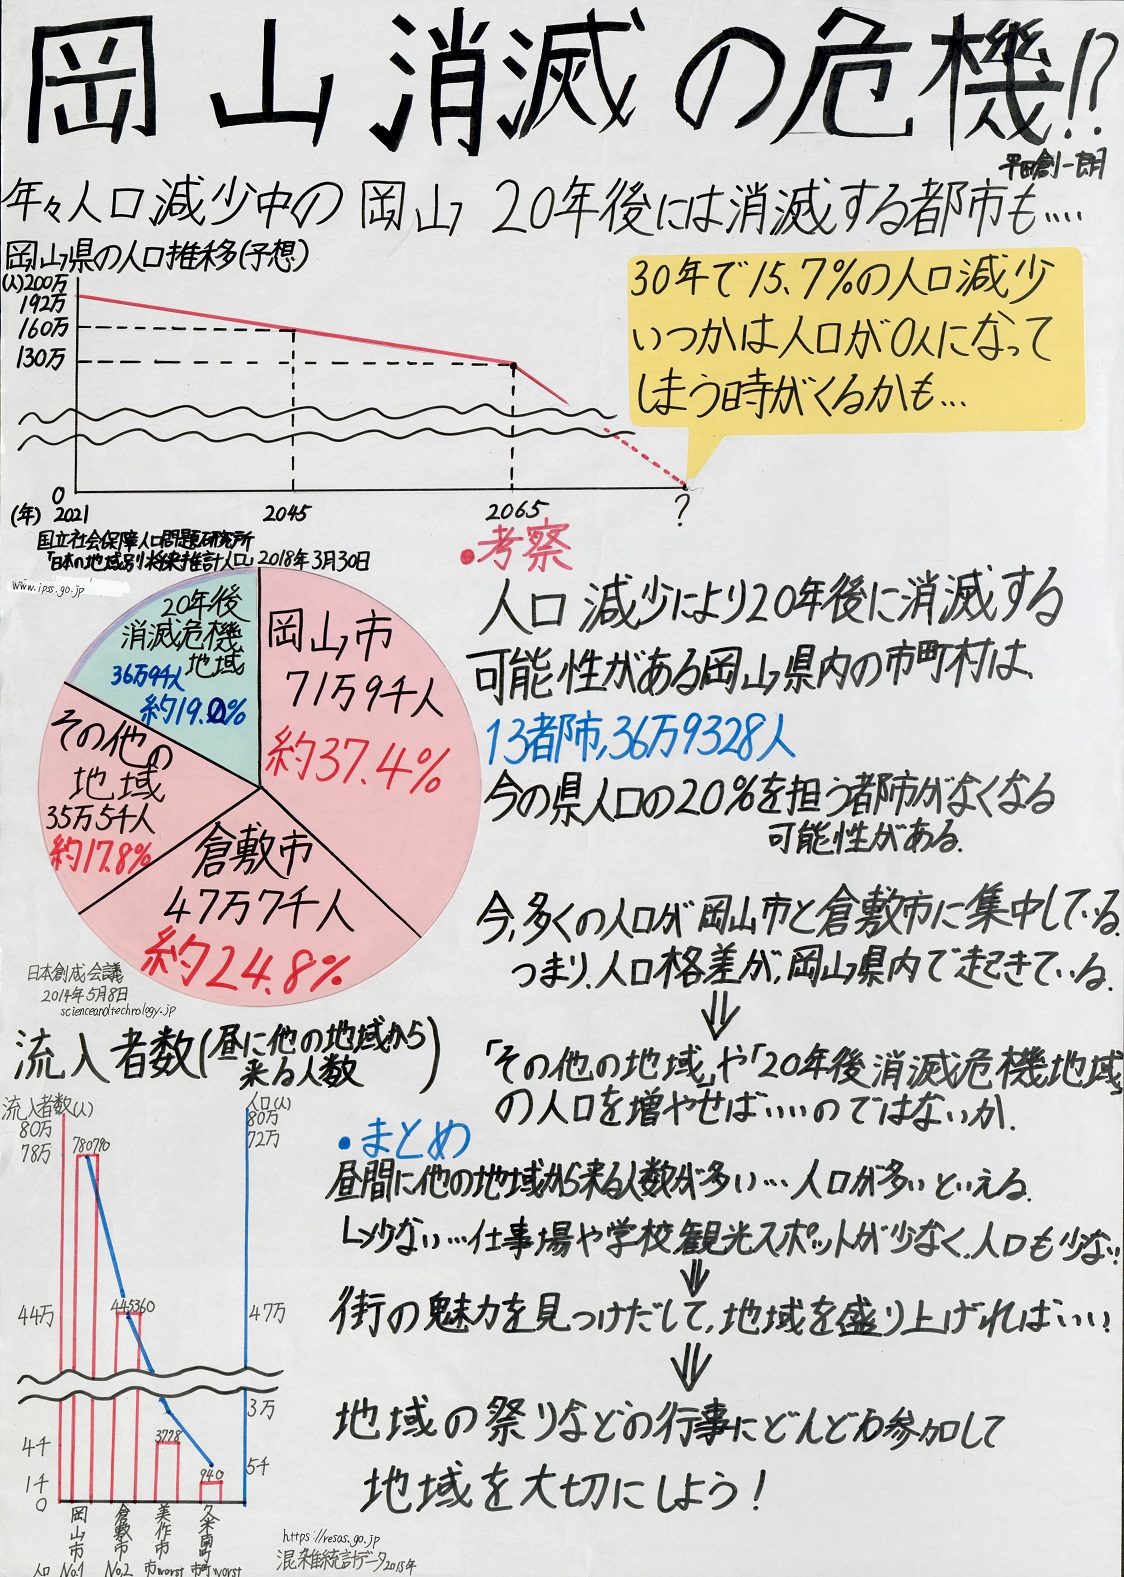 岡山消滅の危機!?
平田創一朗
年々人口減少中の岡山 20年後には消滅する都市も....
岡山県の人口推移(予想)
(人)200万
192万
160万
130万
0
(年) 2021 2045 2065 ?
30年で15.7%の人口減少
いつかは人口が0人になって
しまう時がくるかも...
国立社会保障人口問題研究所
「日本の地域別将来推計人口」2018年3月30日
www.ipss.go.jp
20年後
消滅危機
地域
36万9千人
約19.0%
岡山市
71万9千人
約37.4%
その他の
地域
35万5千人
約17.8%
倉敷市
47万7千人
約24.8%
日本創成会議
2014年5月8日
scienceandtechnology.jp
•考察
人口減少により20年後に消滅する
可能性がある岡山県内の市町村は、
13都市,36万9328人
今の県人口の20%を担う都市がなくなる
可能性がある。
今,多くの人口が岡山市と倉敷市に集中している。
つまり、人口格差が,岡山県内で起きている。
⇓
「その他の地域」や「20年後消滅危機地域」
の人口を増やせばいいのではないか。
流入者数(昼に他の地域から
来る人数)
流入者数(人)
80万
78万
44万
4千
1千
0
780790
445360
3778
940
人口(人)
80万
72万
47万
3万
5千
岡山市
倉敷市
美作市
久米南町
人口 No.1 No.2 市worst 市町worst
•まとめ
昼間に他の地域から来る人数が多い…人口が多いといえる。
↳少ない…仕事場や学校,観光スポットが少なく、人口も少ない!
⇓
街の魅力を見つけだして,地域を盛り上げればいい!
⇓
地域の祭りなどの行事にどんどん参加して
地域を大切にしよう!
https://resas.go.jp
混雑統計データ2015年